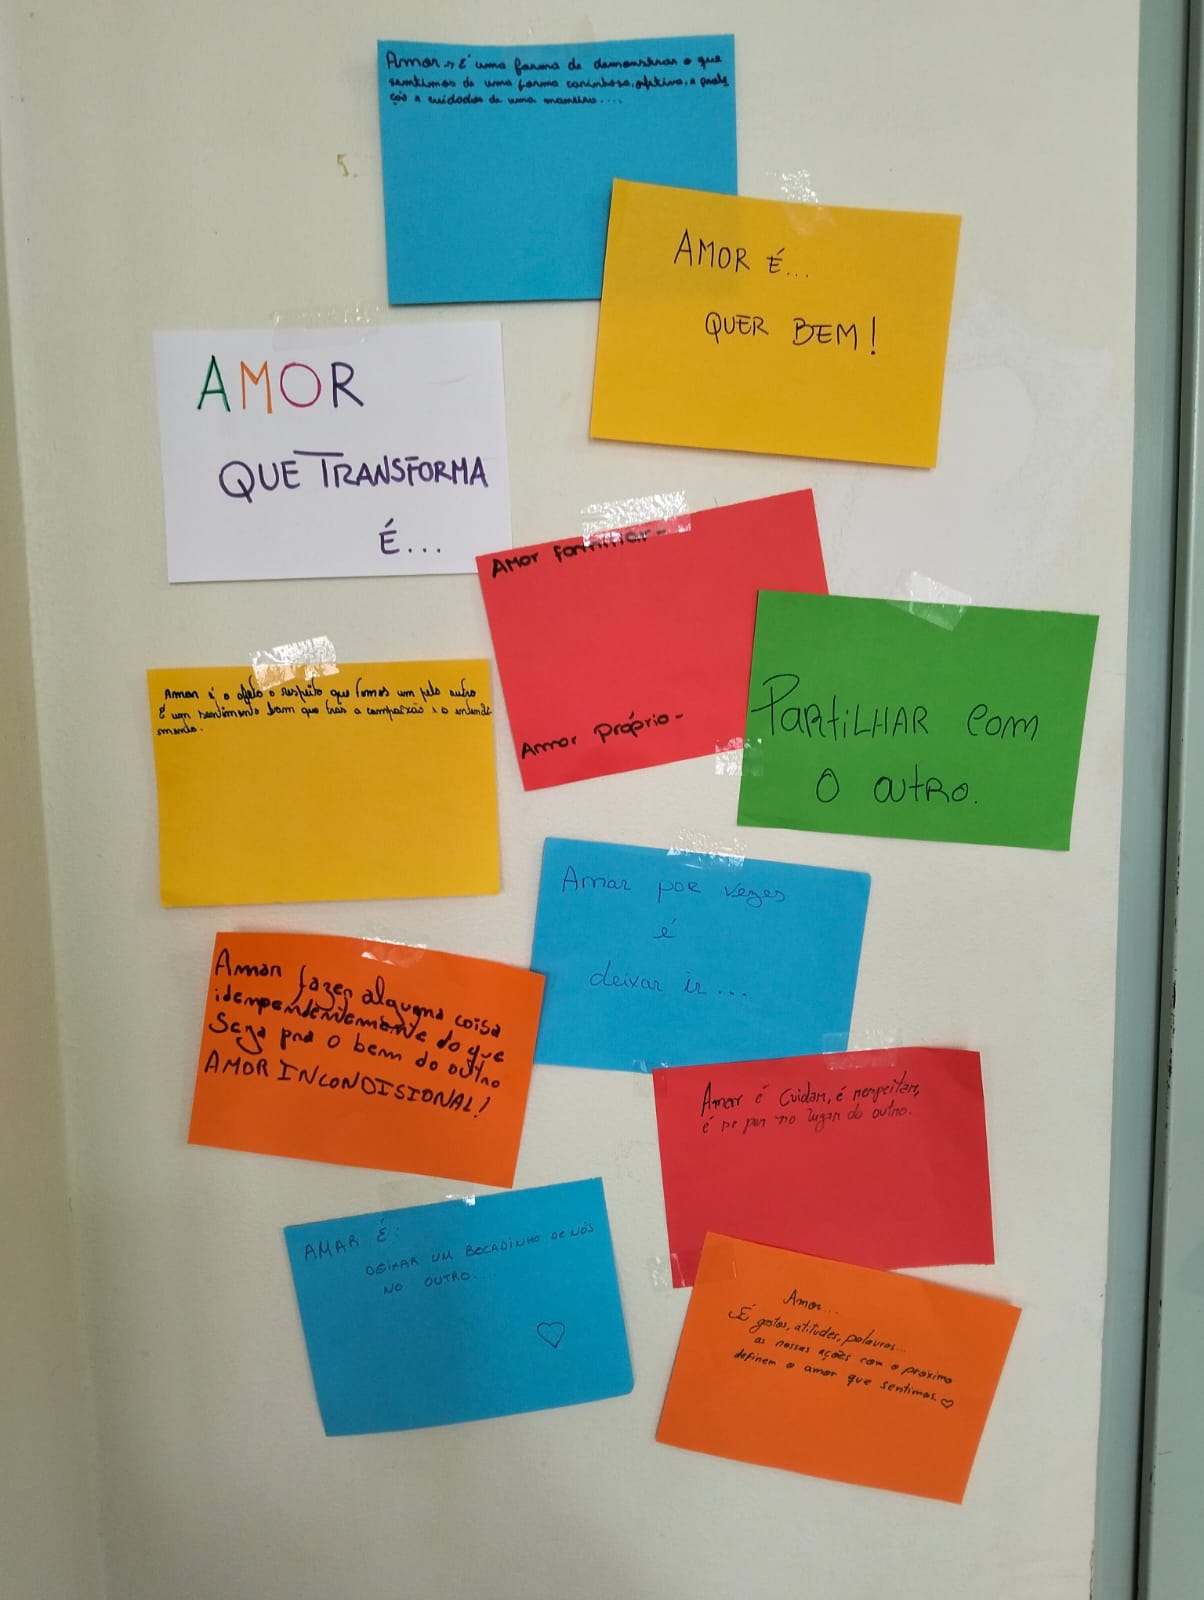 Amor → É uma forma de demonstrar o que
sentimos de uma forma carinhosa, afetiva, a prote
ção e cuidados de uma maneira....
AMOR É...
QUER BEM!
AMOR
QUE TRANSFORMA
É...
Amor familiar-
Amor próprio-
PARTILHAR com
O outRO.
Amor é o afeto o respeito que temos um pelo outro
É um sentimento bom que trás a compaixão e o entendi
mento.
Amar por vezes
é
deixar ir...
Amar fazer alguma coisa
idempendentemente do que
Seza pra o bem do outro
AMOR INCONDISIONAL!
Amar é Cuidar, é respeitar,
é se por no lugar do outro.
AMAR É:
DEIXAR UM BOCADINHO DE NÓS
NO OUTRO...
Amor...
É gestos, atitudes, palavras...
as nossas ações com o próximo
definem o amor que sentimos